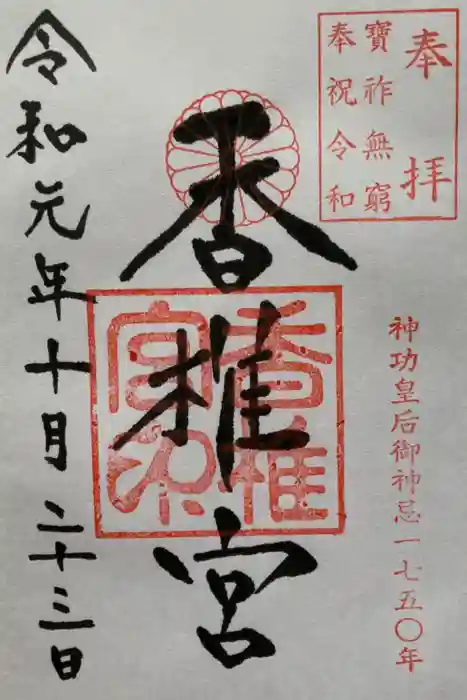 奉拝
寶祚無窮
奉祝令和
神功皇后御神忌一七五〇年
香椎宮
令和元年十月二十三日